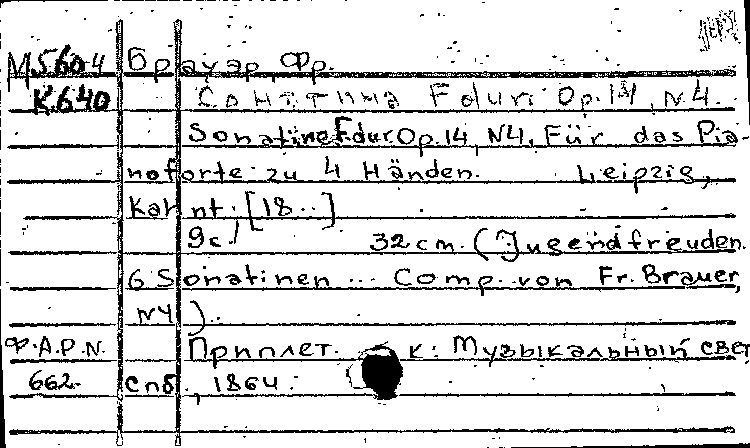 М560ч Брауэр, Фр.
К640 Сонатина F dur. Op. 14, N4.
Sonatine F dur. Op. 14, N4. Für das Pia-
noforte zu 4 Händen. Leipzig,
Kahnt. [18..]
9 с. 32 cm. (Jugendfreuden.
6 Sonatinen ... Comp. von Fr. Brauer,
N4).
Ф.А.Р.N. Приплет. к: Музыкальный свет
662. Спб., 1864.